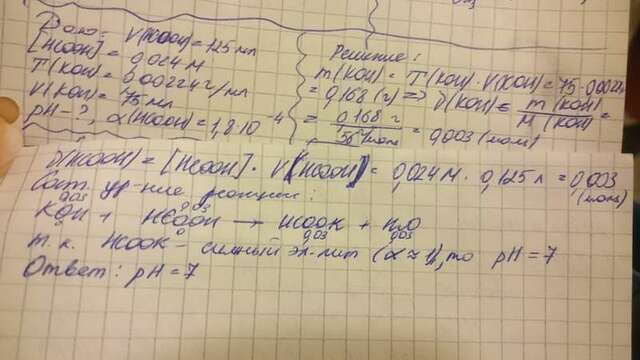 Дано: V(HCOOH) = 125 мл
[HCOOH] = 0,024 M
T(KOH) = 0,00224 г/мл
V(KOH) = 75 мл
pH - ?, α(HCOOH) = 1,8·10⁻⁴
Решение:
m(KOH) = T(KOH)·V(KOH) = 75·0,00224
= 0,168 (г) => ν(KOH) = m(KOH)/M(KOH) =
= 0,168 г / 56 г/моль = 0,003 (моль)
ν(HCOOH) = [HCOOH]·V(HCOOH) = 0,024 M · 0,125 л = 0,003 (моль)
Сост. ур-ние реакции:
0,03 0,03
KOH + HCOOH → HCOOK + H₂O
0 0 0,03 0,03
т.к. HCOOK - сильный эл-лит (α ≈ 1), то pH = 7
Ответ: pH = 7